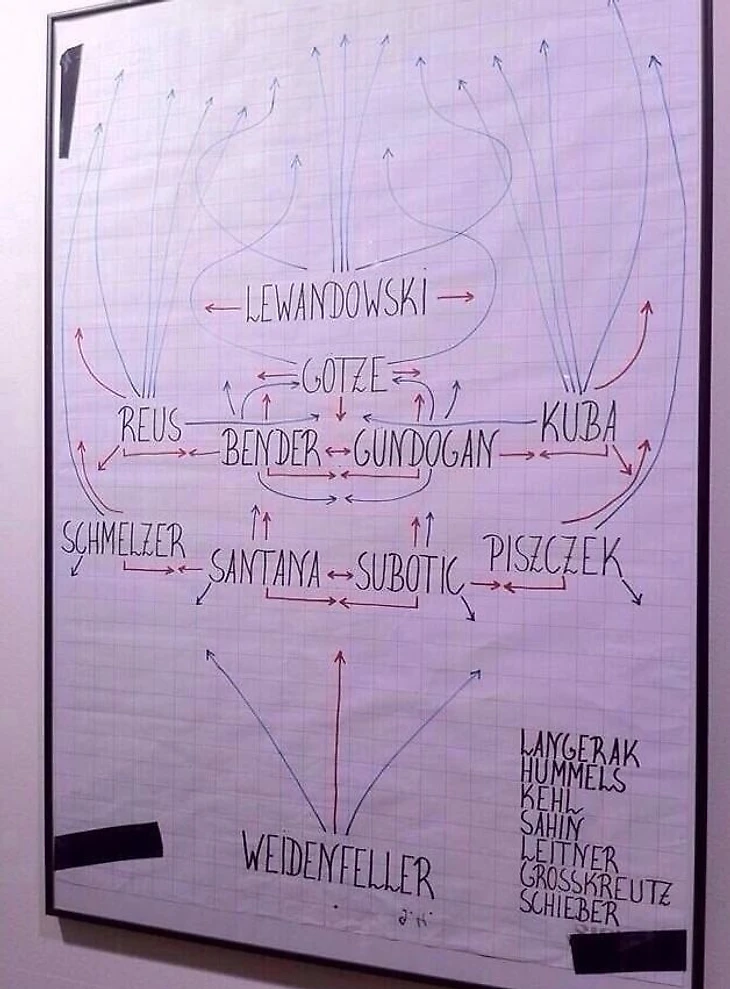 LEWANDOWSKI
GÖTZE
REUS
KUBA
BENDER
GÜNDOGAN
SCHMELZER
PISZCZEK
SANTANA
SUBOTIC
LANGERAK
HUMMELS
KEHL
SAHIN
LEITNER
GROSSKREUTZ
SCHIEBER
WEIDENFELLER